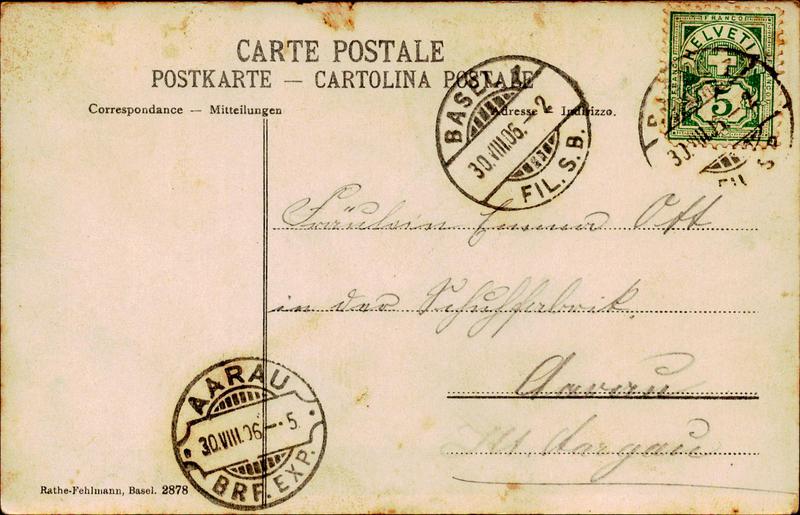 CARTE POSTALE
POSTKARTE — CARTOLINA POSTALE
Correspondance — Mitteilungen
Adresse — Indirizzo.
FRANCO
HELVETIA
5
BASEL 1
30.VIII.06.–2
FIL. S. B.
30.VIII.06.–2
FIL. S. B.
Fräulein Emma Ott
in der Schuhfabrik
Aarau
Kt. Aargau
AARAU
30.VIII.06–.5
BRF. EXP.
Rathe-Fehlmann, Basel. 2878